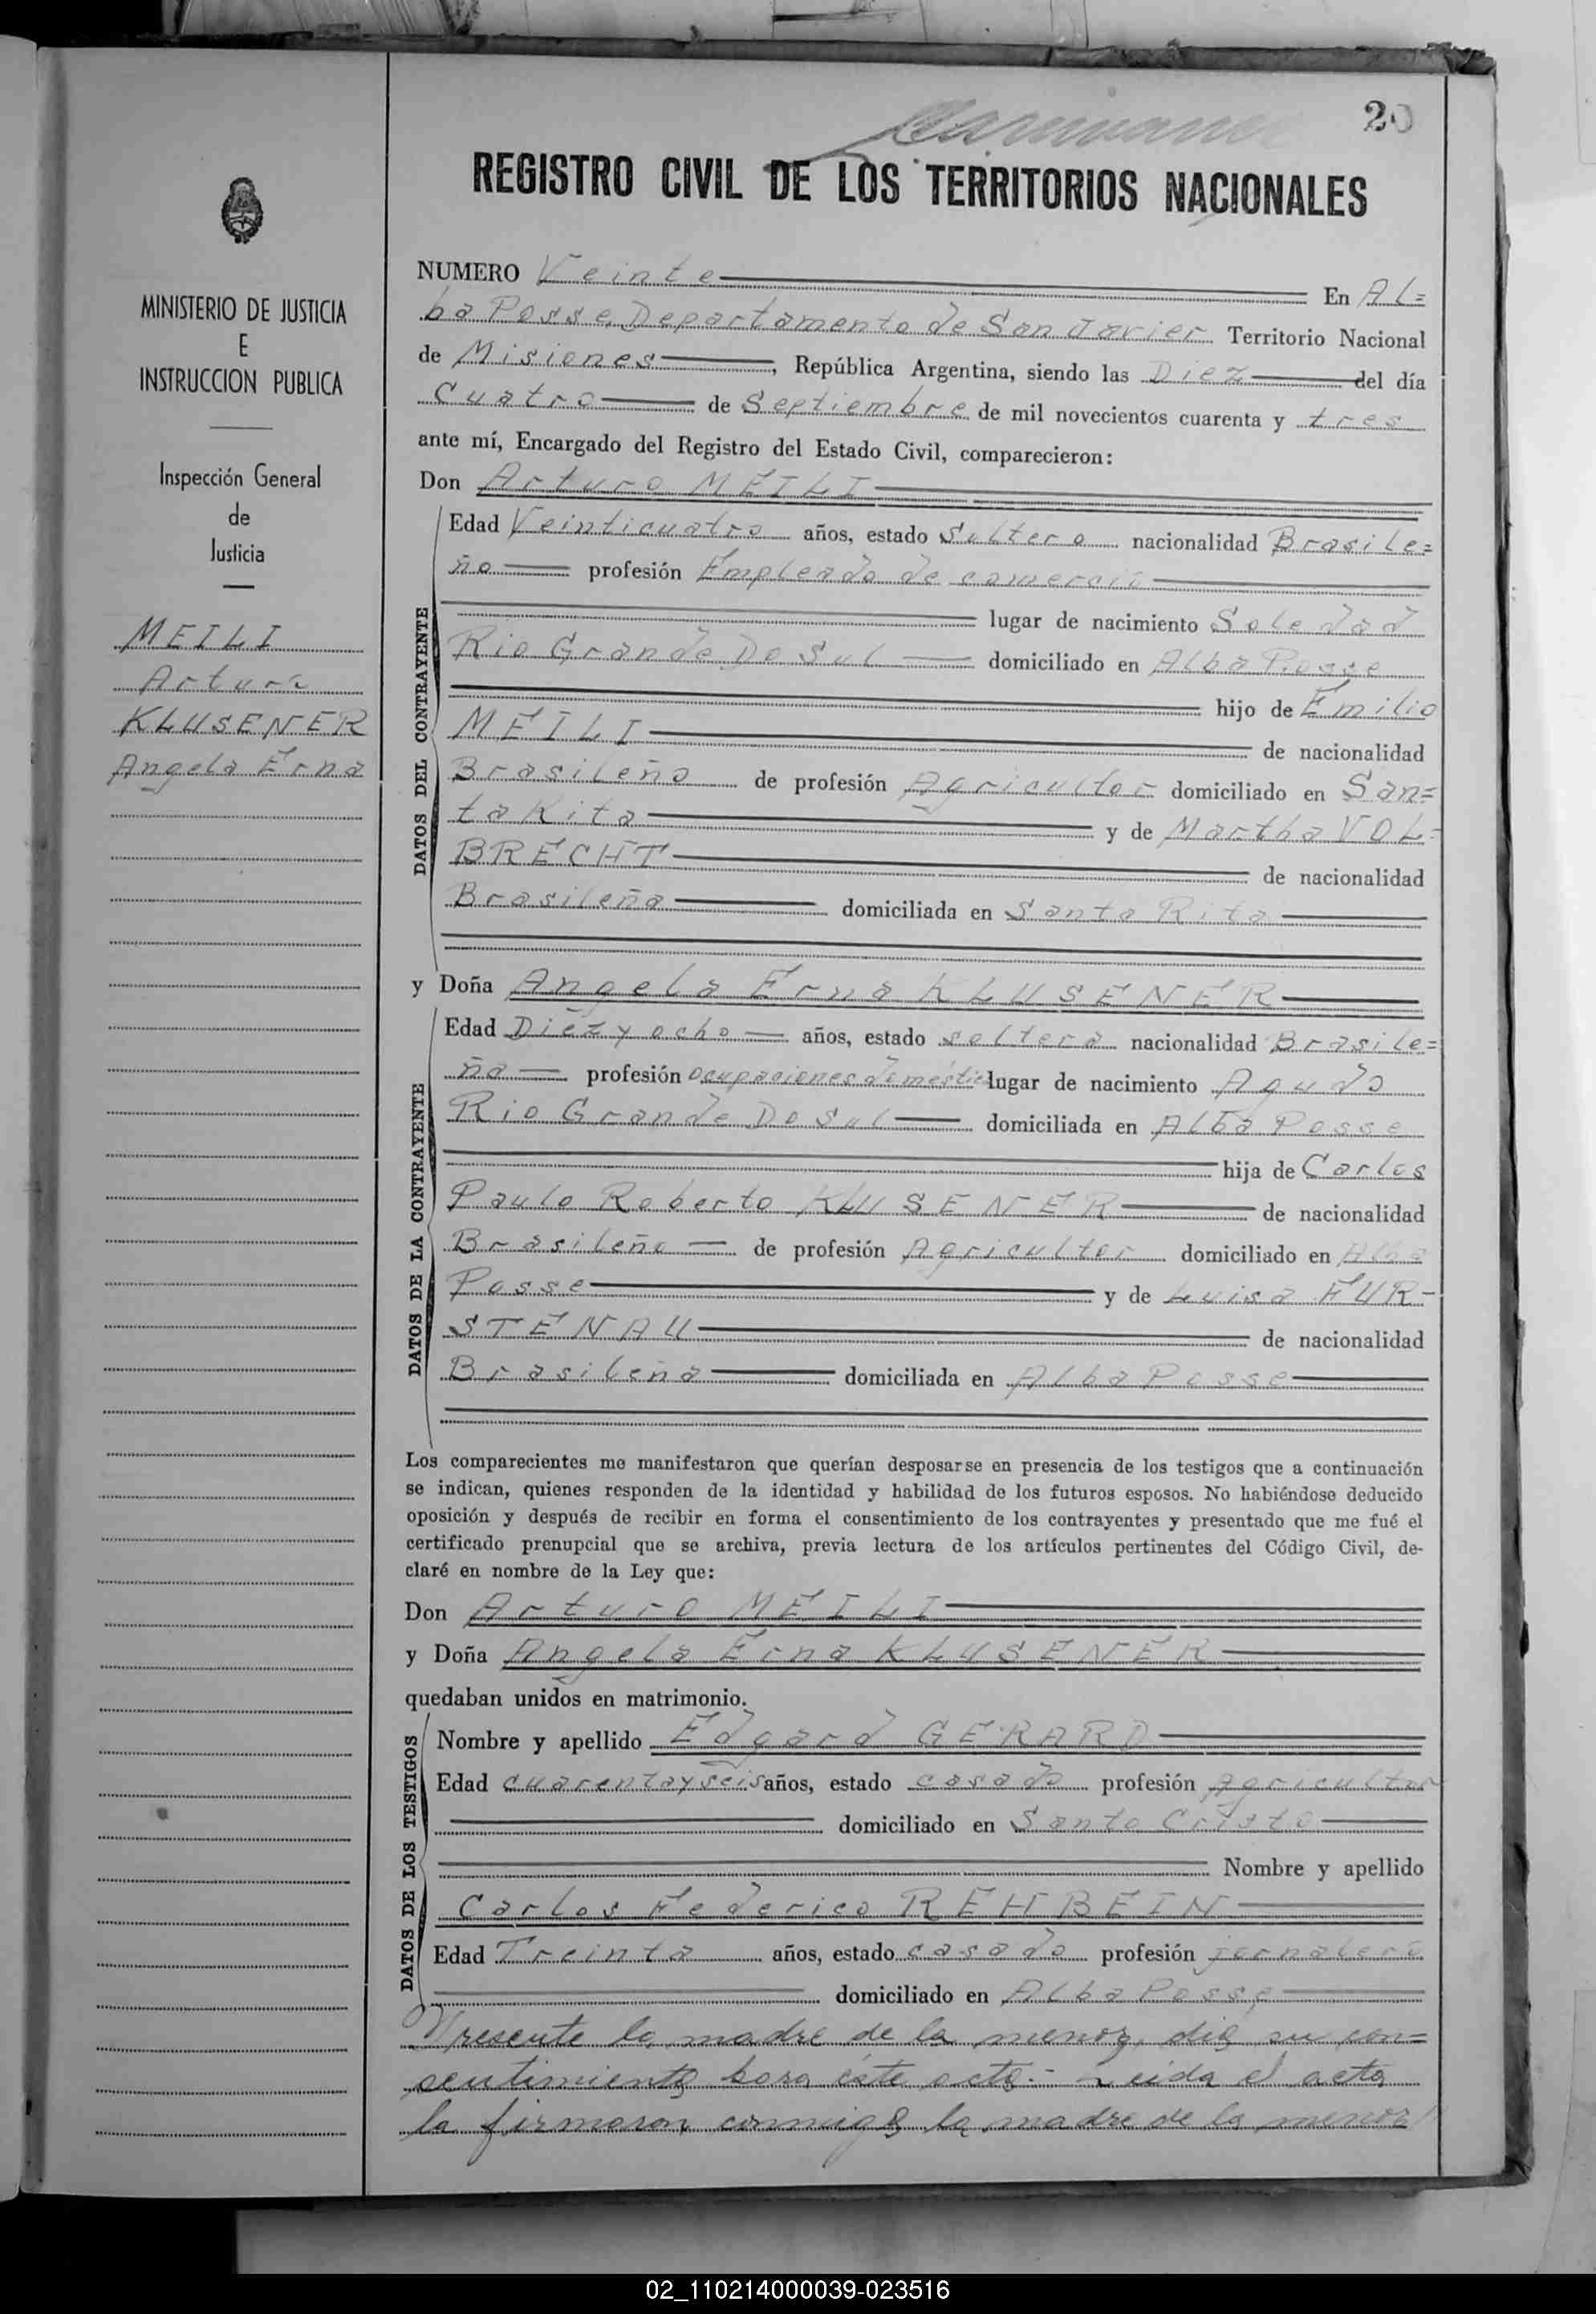 20
REGISTRO CIVIL DE LOS TERRITORIOS NACIONALES
MINISTERIO DE JUSTICIA
E
INSTRUCCION PUBLICA
Inspección General
de
Justicia
MEILI
Arturo
KLUSENER
Angela Erna
NUMERO Veinte En Al=
ba Posse, Departamento de San Javier Territorio Nacional
de Misiones, República Argentina, siendo las Diez del día
Cuatro de Septiembre de mil novecientos cuarenta y tres
ante mí, Encargado del Registro del Estado Civil, comparecieron:
Don Arturo MEILI
DATOS DEL CONTRAYENTE
Edad Veinticuatro años, estado Soltero nacionalidad Brasile=
ño profesión Empleado de comercio
lugar de nacimiento Soledad
Rio Grande Do Sul domiciliado en Alba Posse
hijo de Emilio
MEILI de nacionalidad
Brasileño de profesión Agricultor domiciliado en San=
ta Rita y de Martha VOL=
BRECHT de nacionalidad
Brasileña domiciliada en Santa Rita
y Doña Angela Erna KLUSENER
DATOS DE LA CONTRAYENTE
Edad Diez y ocho años, estado soltera nacionalidad Brasile=
ña profesión ocupaciones domésticas lugar de nacimiento Agudo
Rio Grande Do Sul domiciliada en Alba Posse
hija de Carlos
Paulo Roberto KLUSENER de nacionalidad
Brasileño de profesión Agricultor domiciliado en Alba
Posse y de Luisa FUR-
STENAU de nacionalidad
Brasileña domiciliada en Alba Posse
Los comparecientes me manifestaron que querían desposarse en presencia de los testigos que a continuación
se indican, quienes responden de la identidad y habilidad de los futuros esposos. No habiéndose deducido
oposición y después de recibir en forma el consentimiento de los contrayentes y presentado que me fué el
certificado prenupcial que se archiva, previa lectura de los artículos pertinentes del Código Civil, de-
claré en nombre de la Ley que:
Don Arturo MEILI
y Doña Angela Erna KLUSENER
quedaban unidos en matrimonio.
DATOS DE LOS TESTIGOS
Nombre y apellido Edgard GERARD
Edad cuarenta y seis años, estado casado profesión Agricultor
domiciliado en Santo Cristo
Nombre y apellido
Carlos Federico REHBEIN
Edad Treinta años, estado casado profesión jornalero
domiciliado en Alba Posse
Presente la madre de la menor, dió su con=
sentimiento para éste acto.- Leída el acta
la firmaron conmigo la madre de la menor
02_110214000039-023516